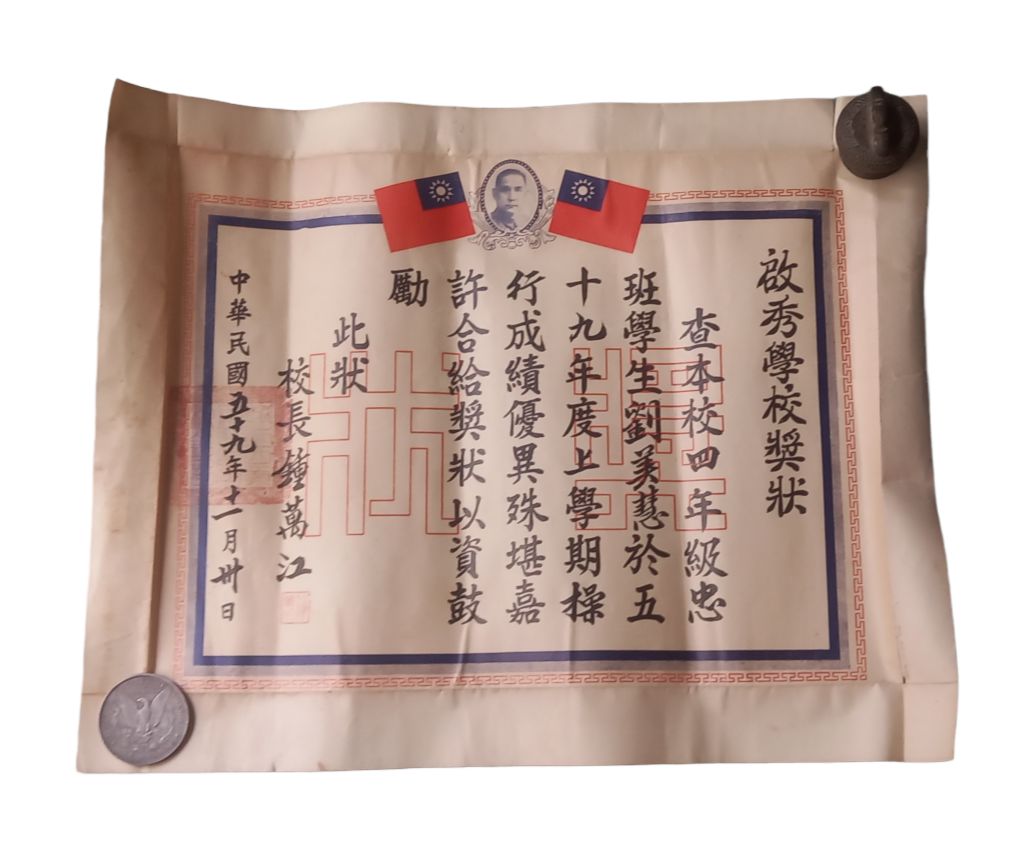 啟秀學校獎狀
查本校四年級忠
班學生劉美慧於五
十九年度上學期操
行成績優異殊堪嘉
許合給獎狀以資鼓
勵
此狀
校長鍾萬江
中華民國五十九年十一月卅日
獎狀